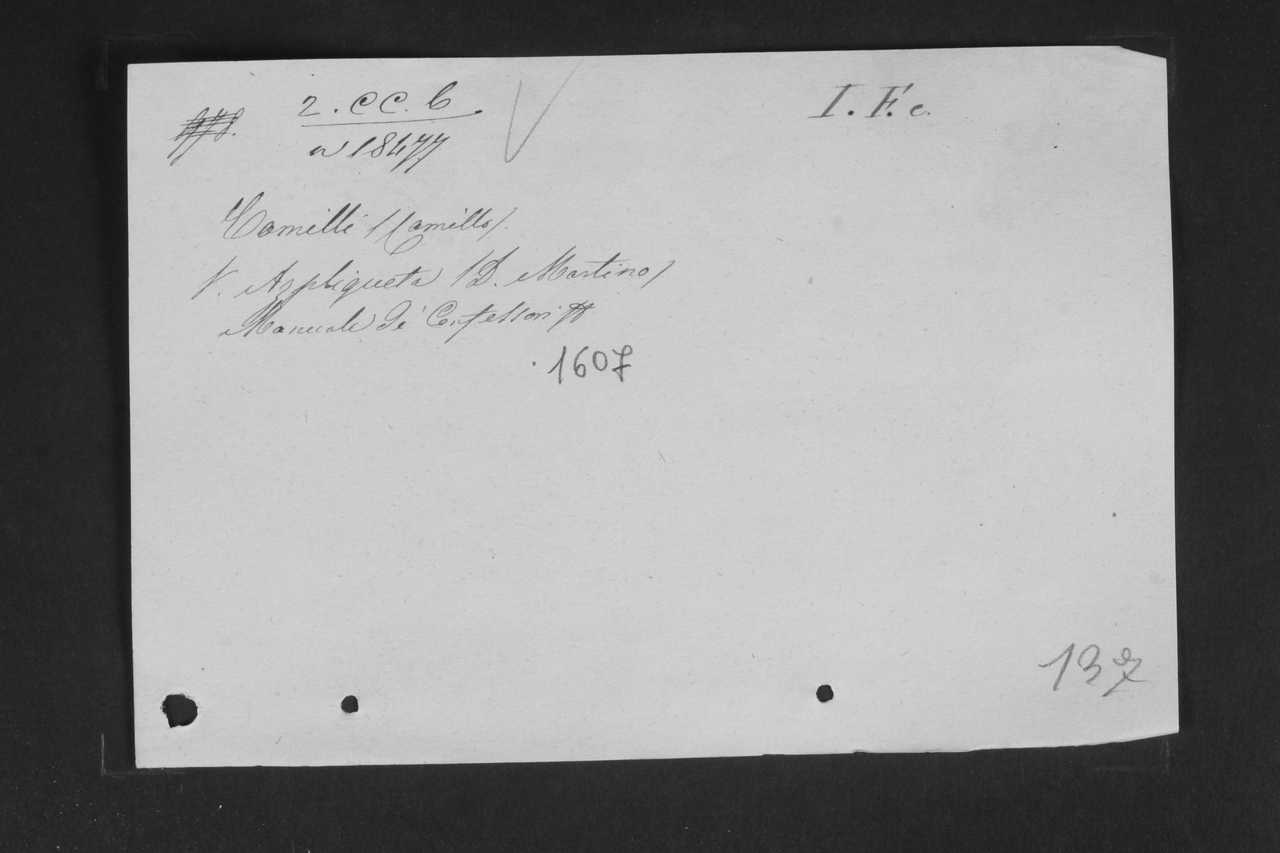 2. CC. 6. I. F. c.
n 18477
Camilli (Camillo).
V. Azpliqueta (D. Martino)
Manuale de' Confessori
1607
137